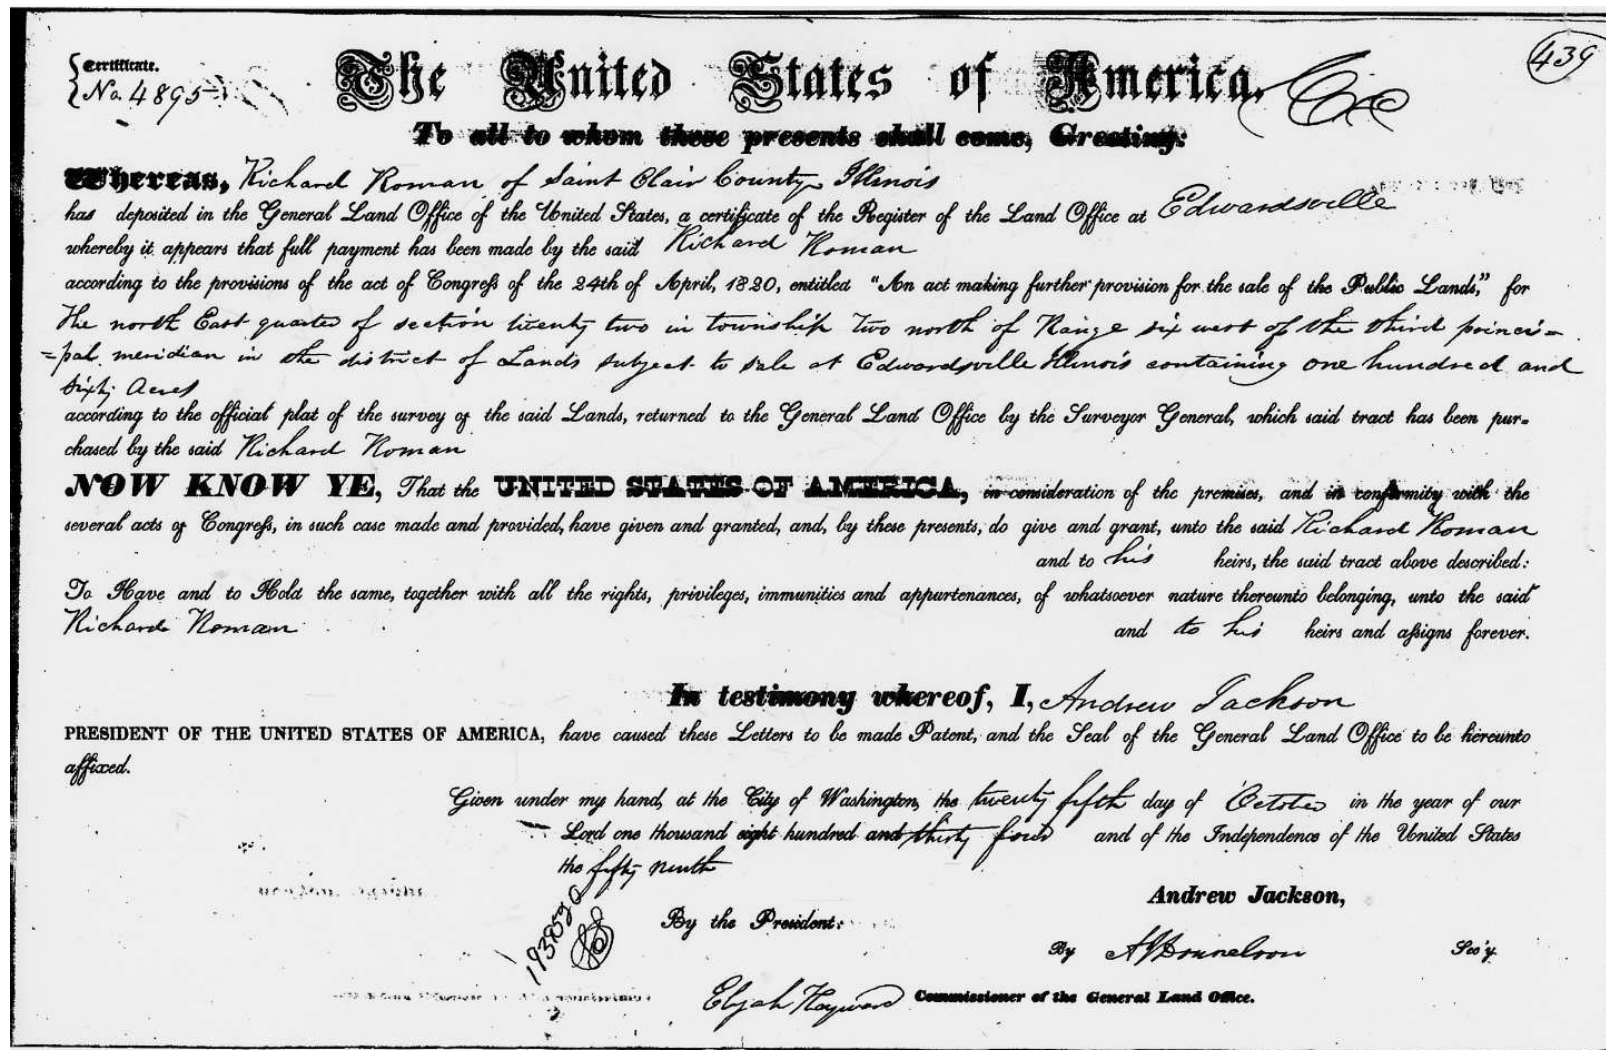 Certificate.
No. 4895
439
The United States of America.
To all to whom these presents shall come, Greeting:
Whereas, Richard Roman of Saint Clair County, Illinois
has deposited in the General Land Office of the United States, a certificate of the Register of the Land Office at Edwardsville
whereby it appears that full payment has been made by the said Richard Roman
according to the provisions of the act of Congress of the 24th of April, 1820, entitled "An act making further provision for the sale of the Public Lands," for
the north East quarter of section twenty two in township two north of Range six west of the third princi=
=pal meridian in the district of Lands subject to sale at Edwardsville Illinois containing one hundred and
sixty Acres
according to the official plat of the survey of the said Lands, returned to the General Land Office by the Surveyor General, which said tract has been pur-
chased by the said Richard Roman
NOW KNOW YE, That the UNITED STATES OF AMERICA, in consideration of the premises, and in conformity with the
several acts of Congress, in such case made and provided, have given and granted, and, by these presents, do give and grant, unto the said Richard Roman
and to his heirs, the said tract above described:
To Have and to Hold the same, together with all the rights, privileges, immunities and appurtenances, of whatsoever nature thereunto belonging, unto the said
Richard Roman and to his heirs and assigns forever.
In testimony whereof, I, Andrew Jackson
PRESIDENT OF THE UNITED STATES OF AMERICA, have caused these Letters to be made Patent, and the Seal of the General Land Office to be hereunto
affixed.
Given under my hand, at the City of Washington, the twenty fifth day of October in the year of our
Lord one thousand eight hundred and thirty four and of the Independence of the United States
the fifty ninth
Andrew Jackson,
By the President:
By A J Donnelson Sec'y.
Elijah Hayward Commissioner of the General Land Office.